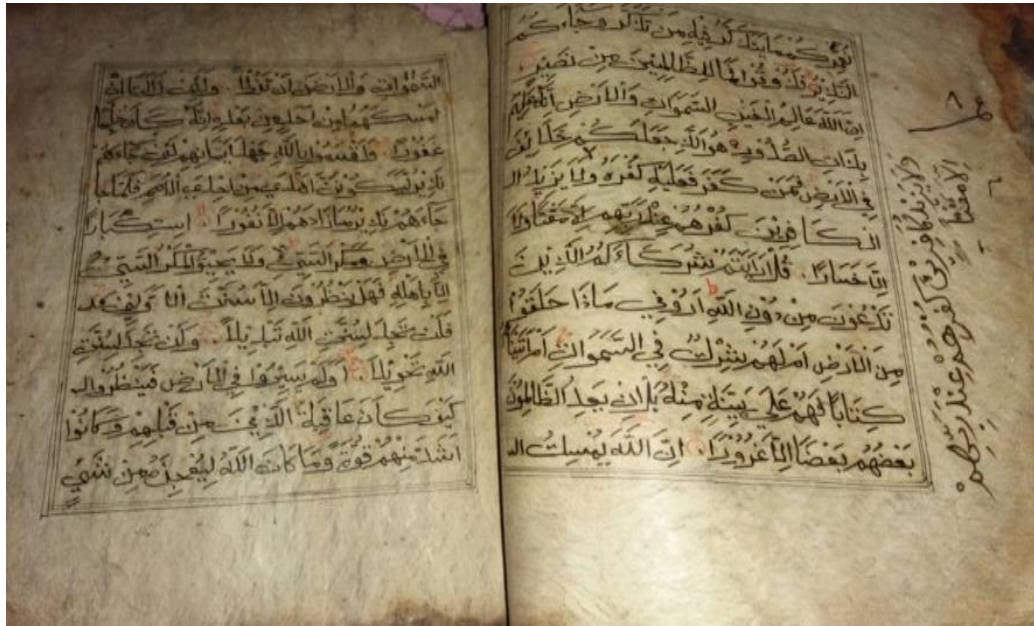 نُعَمِّرْكُمْ مَا يَتَذَكَّرُ فِيْهِ مَنْ تَذَكَّرَ وَجَاءَكُمُ
النَّذِيْرُ فَذُوْقُوْا فَمَا لِلظَّالِمِيْنَ مِنْ نَصِيْرٍ
اِنَّ اللّٰهَ عَالِمُ الْغَيْبِ السَّمٰوَاتِ وَالْاَرْضِ اِنَّهُ عَلِيْمٌ
بِذَاتِ الصُّدُوْرِ هُوَ الَّذِي جَعَلَكُمْ خَلَائِفَ
فِي الْاَرْضِ فَمَنْ كَفَرَ فَعَلَيْهِ كُفْرُهُ وَلَا يَزِيْدُ الـ
الْكَافِرِيْنَ كُفْرُهُمْ عِنْدَ رَبِّهِمْ اِلَّا مَقْتًا وَلَا
اِلَّا خَسَارًا قُلْ اَرَاَيْتُمْ شُرَكَاءَكُمُ الَّذِيْنَ
تَدْعُوْنَ مِنْ دُوْنِ اللّٰهِ اَرُوْنِي مَاذَا خَلَقُوْا
مِنَ الْاَرْضِ اَمْ لَهُمْ شِرْكٌ فِي السَّمٰوَاتِ اَمْ اٰتَيْنَاهُمْ
كِتَابًا فَهُمْ عَلٰى بَيِّنَةٍ مِنْهُ بَلْ اِنْ يَعِدُ الظَّالِمُوْنَ
بَعْضُهُمْ بَعْضًا اِلَّا غُرُوْرًا اِنَّ اللّٰهَ يُمْسِكُ الـ
وَلَا يَزِيْدُ الْكَافِرِيْنَ كُفْرُهُمْ عِنْدَ رَبِّهِمْ
اِلَّا مَقْتًا
السَّمٰوَاتِ وَالْاَرْضَ اَنْ تَزُوْلَا وَلَئِنْ زَالَتَا اِنْ
اَمْسَكَهُمَا مِنْ اَحَدٍ مِنْ بَعْدِهِ اِنَّهُ كَانَ حَلِيْمًا
غَفُوْرًا وَاَقْسَمُوْا بِاللّٰهِ جَهْدَ اَيْمَانِهِمْ لَئِنْ جَاءَهُمْ
نَذِيْرٌ لَيَكُوْنُنَّ اَهْدٰى مِنْ اِحْدَى الْاُمَمِ فَلَمَّا
جَاءَهُمْ نَذِيْرٌ مَا زَادَهُمْ اِلَّا نُفُوْرًا اسْتِكْبَارًا
فِي الْاَرْضِ وَمَكْرَ السَّيِّئِ وَلَا يَحِيْقُ الْمَكْرُ السَّيِّئُ
اِلَّا بِاَهْلِهِ فَهَلْ يَنْظُرُوْنَ اِلَّا سُنَّتَ الْاَوَّلِيْنَ
فَلَنْ تَجِدَ لِسُنَّتِ اللّٰهِ تَبْدِيْلًا وَلَنْ تَجِدَ لِسُنَّتِ
اللّٰهِ تَحْوِيْلًا اَوَلَمْ يَسِيْرُوْا فِي الْاَرْضِ فَيَنْظُرُوْا
كَيْفَ كَانَ عَاقِبَةُ الَّذِيْنَ مِنْ قَبْلِهِمْ وَكَانُوْا
اَشَدَّ مِنْهُمْ قُوَّةً وَمَا كَانَ اللّٰهُ لِيُعْجِزَهُ مِنْ شَيْءٍ